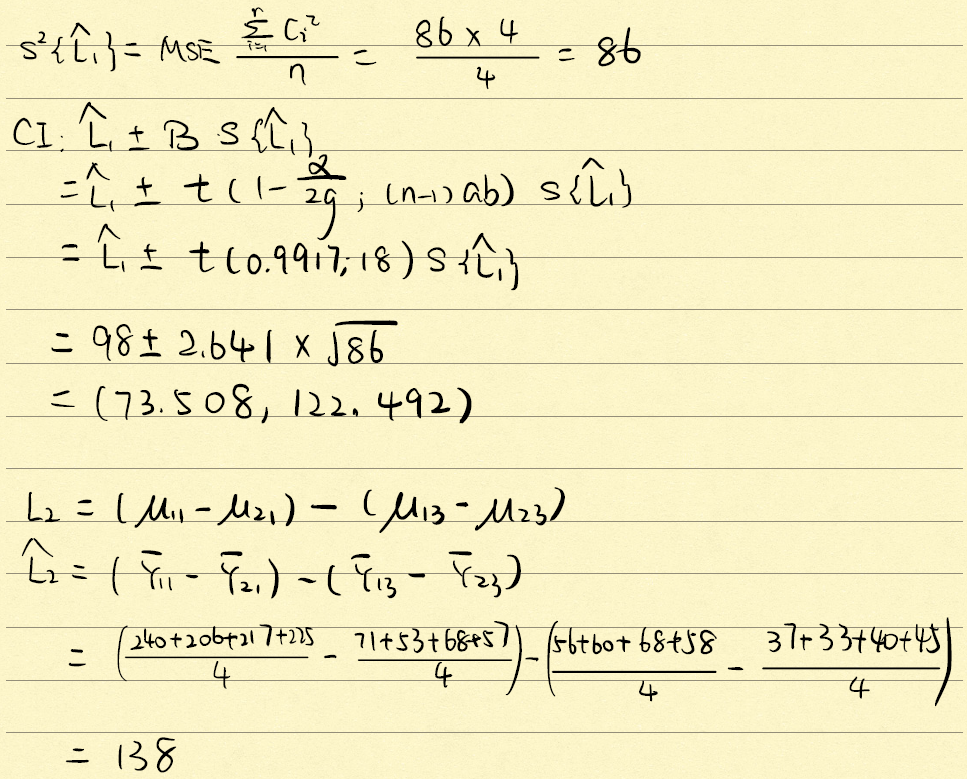 s²{L̂₁} = MSE \frac{\sum_{i=1}^{r} C_i^2}{n} = \frac{86 × 4}{4} = 86
CI: L̂₁ ± B s{L̂₁}
= L̂₁ ± t(1 - \frac{α}{2g}; (n-1)ab) s{L̂₁}
= L̂₁ ± t(0.9917; 18) s{L̂₁}
= 98 ± 2.641 × √86
= (73.508, 122.492)
L₂ = (μ₁₁ - μ₂₁) - (μ₁₃ - μ₂₃)
L̂₂ = (Ȳ₁₁ - Ȳ₂₁) - (Ȳ₁₃ - Ȳ₂₃)
= (\frac{240+206+217+225}{4} - \frac{71+53+68+57}{4}) - (\frac{56+60+68+58}{4} - \frac{37+33+40+45}{4})
= 138